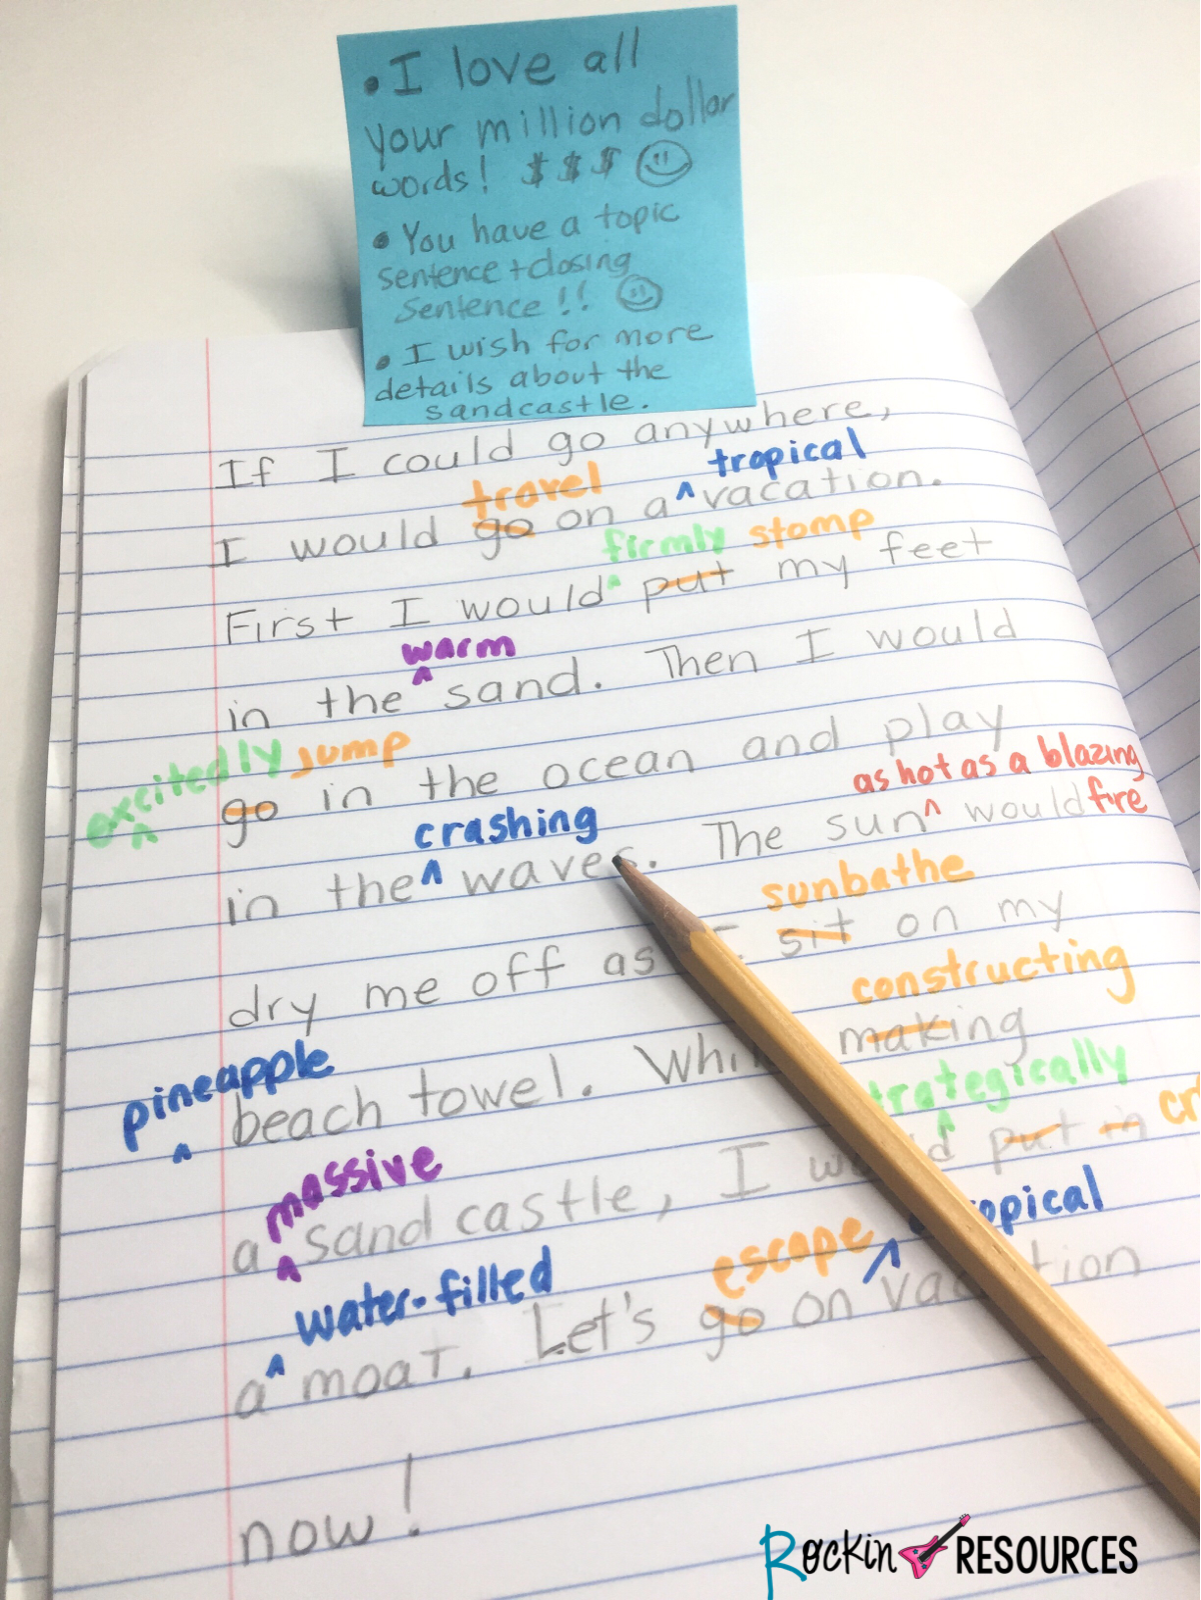 • I love all
your million dollar
words! $ $ $
• You have a topic
sentence + closing
sentence !!
• I wish for more
details about the
sandcastle.
If I could go anywhere,
travel tropical
I would go on a ^ vacation.
firmly stomp
First I would ^ put my feet
warm
in the ^ sand. Then I would
excitedly jump
^ go in the ocean and play
as hot as a blazing
crashing fire
in the ^ waves. The sun ^ would
sunbathe
dry me off as sit on my
pineapple constructing
^ beach towel. making
massive
a ^ sand castle, I put in
water-filled escape
a ^ moat. Let's go on ^
now!
Rockin RESOURCES